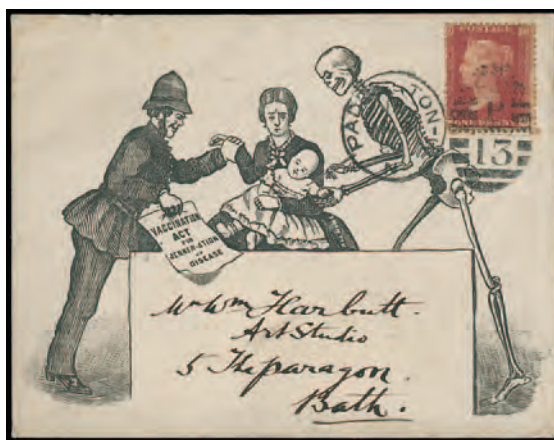 POSTAGE
ONE PENNY
PADDINGTON-
13
VACCINATION
ACT
FOR
JENNER-ATION
OF
DISEASE
Mr Wm Harbutt.
Art Studio
5 The paragon.
Bath.